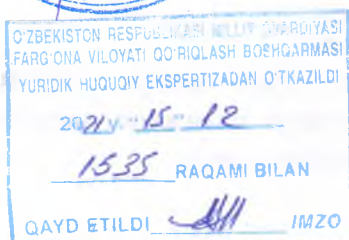 O'ZBEKISTON RESPUBLIKASI MILLIY GVARDIYASI
FARG'ONA VILOYATI QO'RIQLASH BOSHQARMASI
YURIDIK HUQUQIY EKSPERTIZADAN O'TKAZILDI
2021 y. "15" 12
1535 RAQAMI BILAN
QAYD ETILDI IMZO